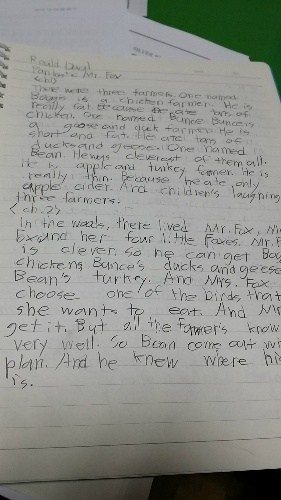 Roald Dahl
Fantastic Mr. Fox
<ch.1>
There were three farmers. One named
Boggis is a chicken farmer. He is
really fat because ate tons of
chicken. One named Bunce Bunce is
a goose and duck farmer. He is
short and fat. He ate tons of
ducks and geese. One named
Bean. He was cleverest of them all.
He is apple and turkey farmer. He is
really thin. Because he ate only
apple cider. And children's laughing
three farmers.
<ch.2>
In the woods, there lived Mr. Fox, Mrs
Fox and her four little foxes. Mr. F
is clever. So he can get Bog
chickens Bunce's ducks and geese
Bean's turkey. And Mrs. Fox
choose one of the birds that
she wants to eat. And Mr
get it. But all the farmer's know
very well. So Bean come out w
plan. And he knew where hi
is.